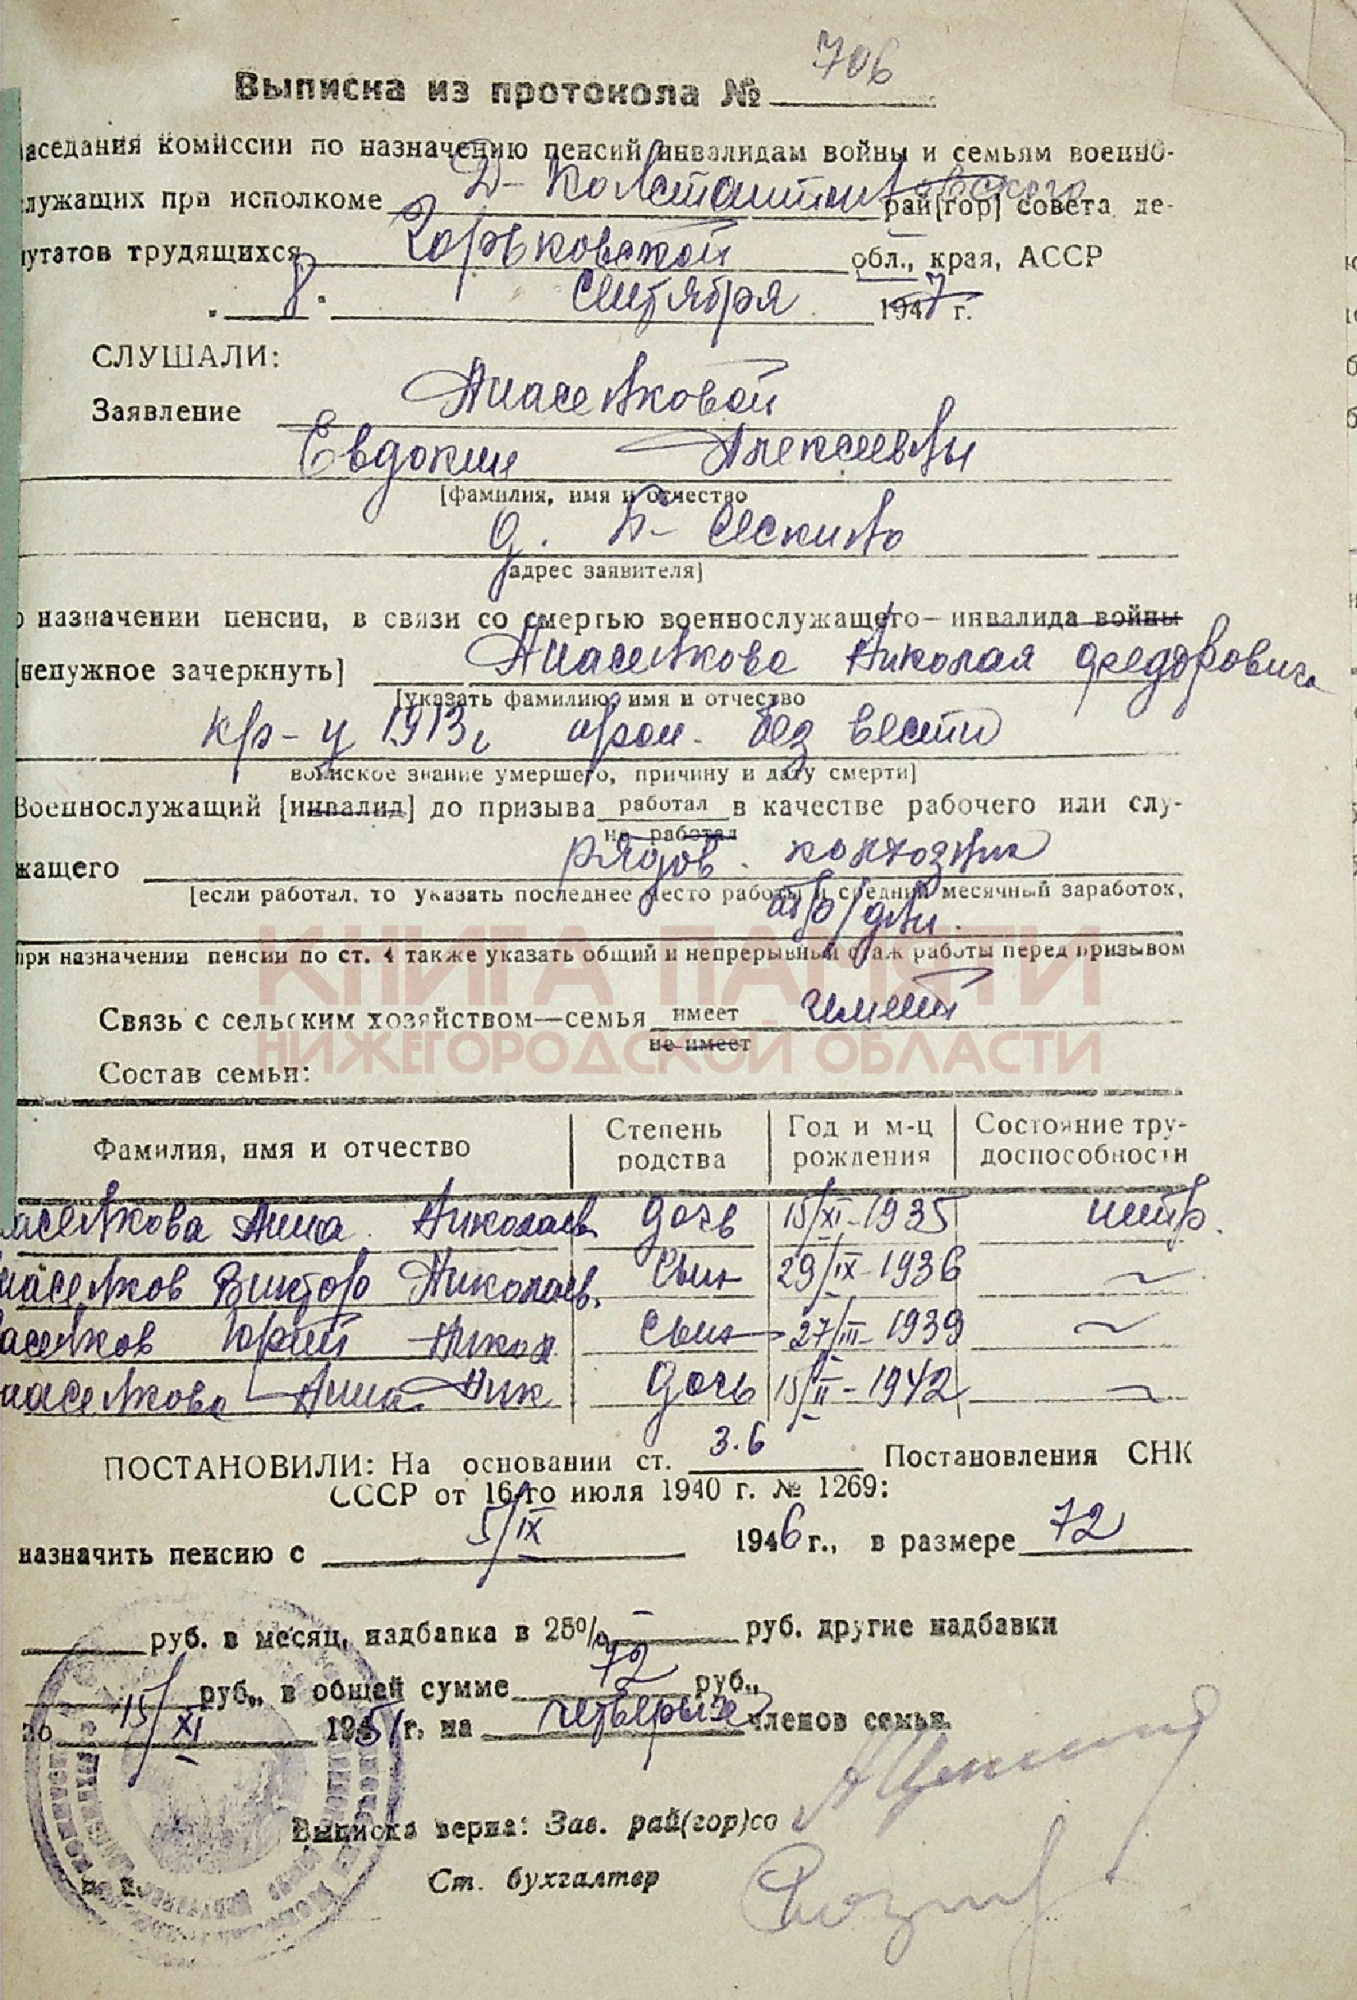 Выписка из протокола № 706
заседания комиссии по назначению пенсий инвалидам войны и семьям военно-
служащих при исполкоме Д-Константиновского рай[гор] совета де-
путатов трудящихся Горьковской обл., края, АССР
8. сентября 1947 г.
СЛУШАЛИ:
Заявление
Евдокии Алексеевны
[фамилия, имя и отчество
д. Б- Сескино
адрес заявителя]
о назначении пенсии, в связи со смертью военнослужащего—инвалида войны
[ненужное зачеркнуть] Николая Федоровича
[указать фамилию, имя и отчество
кр-ц 1913г проп. без вести
воинское звание умершего, причину и дату смерти]
Военнослужащий [инвалид] до призыва работал в качестве рабочего или слу-
не работал
жащего рядов. колхозник
[если работал, то указать последнее место работы и средний месячный заработок,
при назначении пенсии по ст. 4 также указать общий и непрерывный стаж работы перед призывом
КНИГА ПАМЯТИ
Связь с сельским хозяйством—семья имеет имеет
не имеет
НИЖЕГОРОДСКОЙ ОБЛАСТИ
Состав семьи:
Фамилия, имя и отчество Степень родства Год и м-ц рождения Состояние тру-доспособности
Николаев дочь 15/XI-1935
Виктор Николаев. сын 29/IX-1936 ~
Юрий Никол сын 27/III-1939 ~
Ник дочь 15/II-1942 ~
ПОСТАНОВИЛИ: На основании ст. 3.6 Постановления СНК
СССР от 16-го июля 1940 г. № 1269:
назначить пенсию с 5/IX 1946 г., в размере 72
руб. в месяц, надбавка в 25% — руб. другие надбавки
руб., в общей сумме 72 руб.,
по 15/XI 1951 г. на четверых членов семьи.
Выписка верна: Зав. рай(гор)со
Ст. бухгалтер